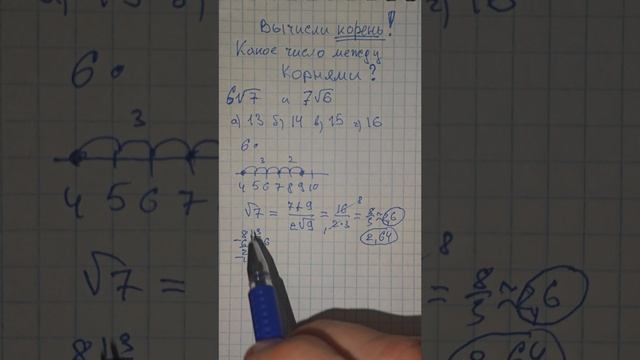 Вычисли корень!
Какое число между
корнями?
6√7 и 7√6
а) 13 б) 14 в) 15 г) 16
6.
3 2
4 5 6 7 8 9 10
√7 = 7+9/2√9 = 16/2·3 = 8/3 ≈ 2,6
8
2,64